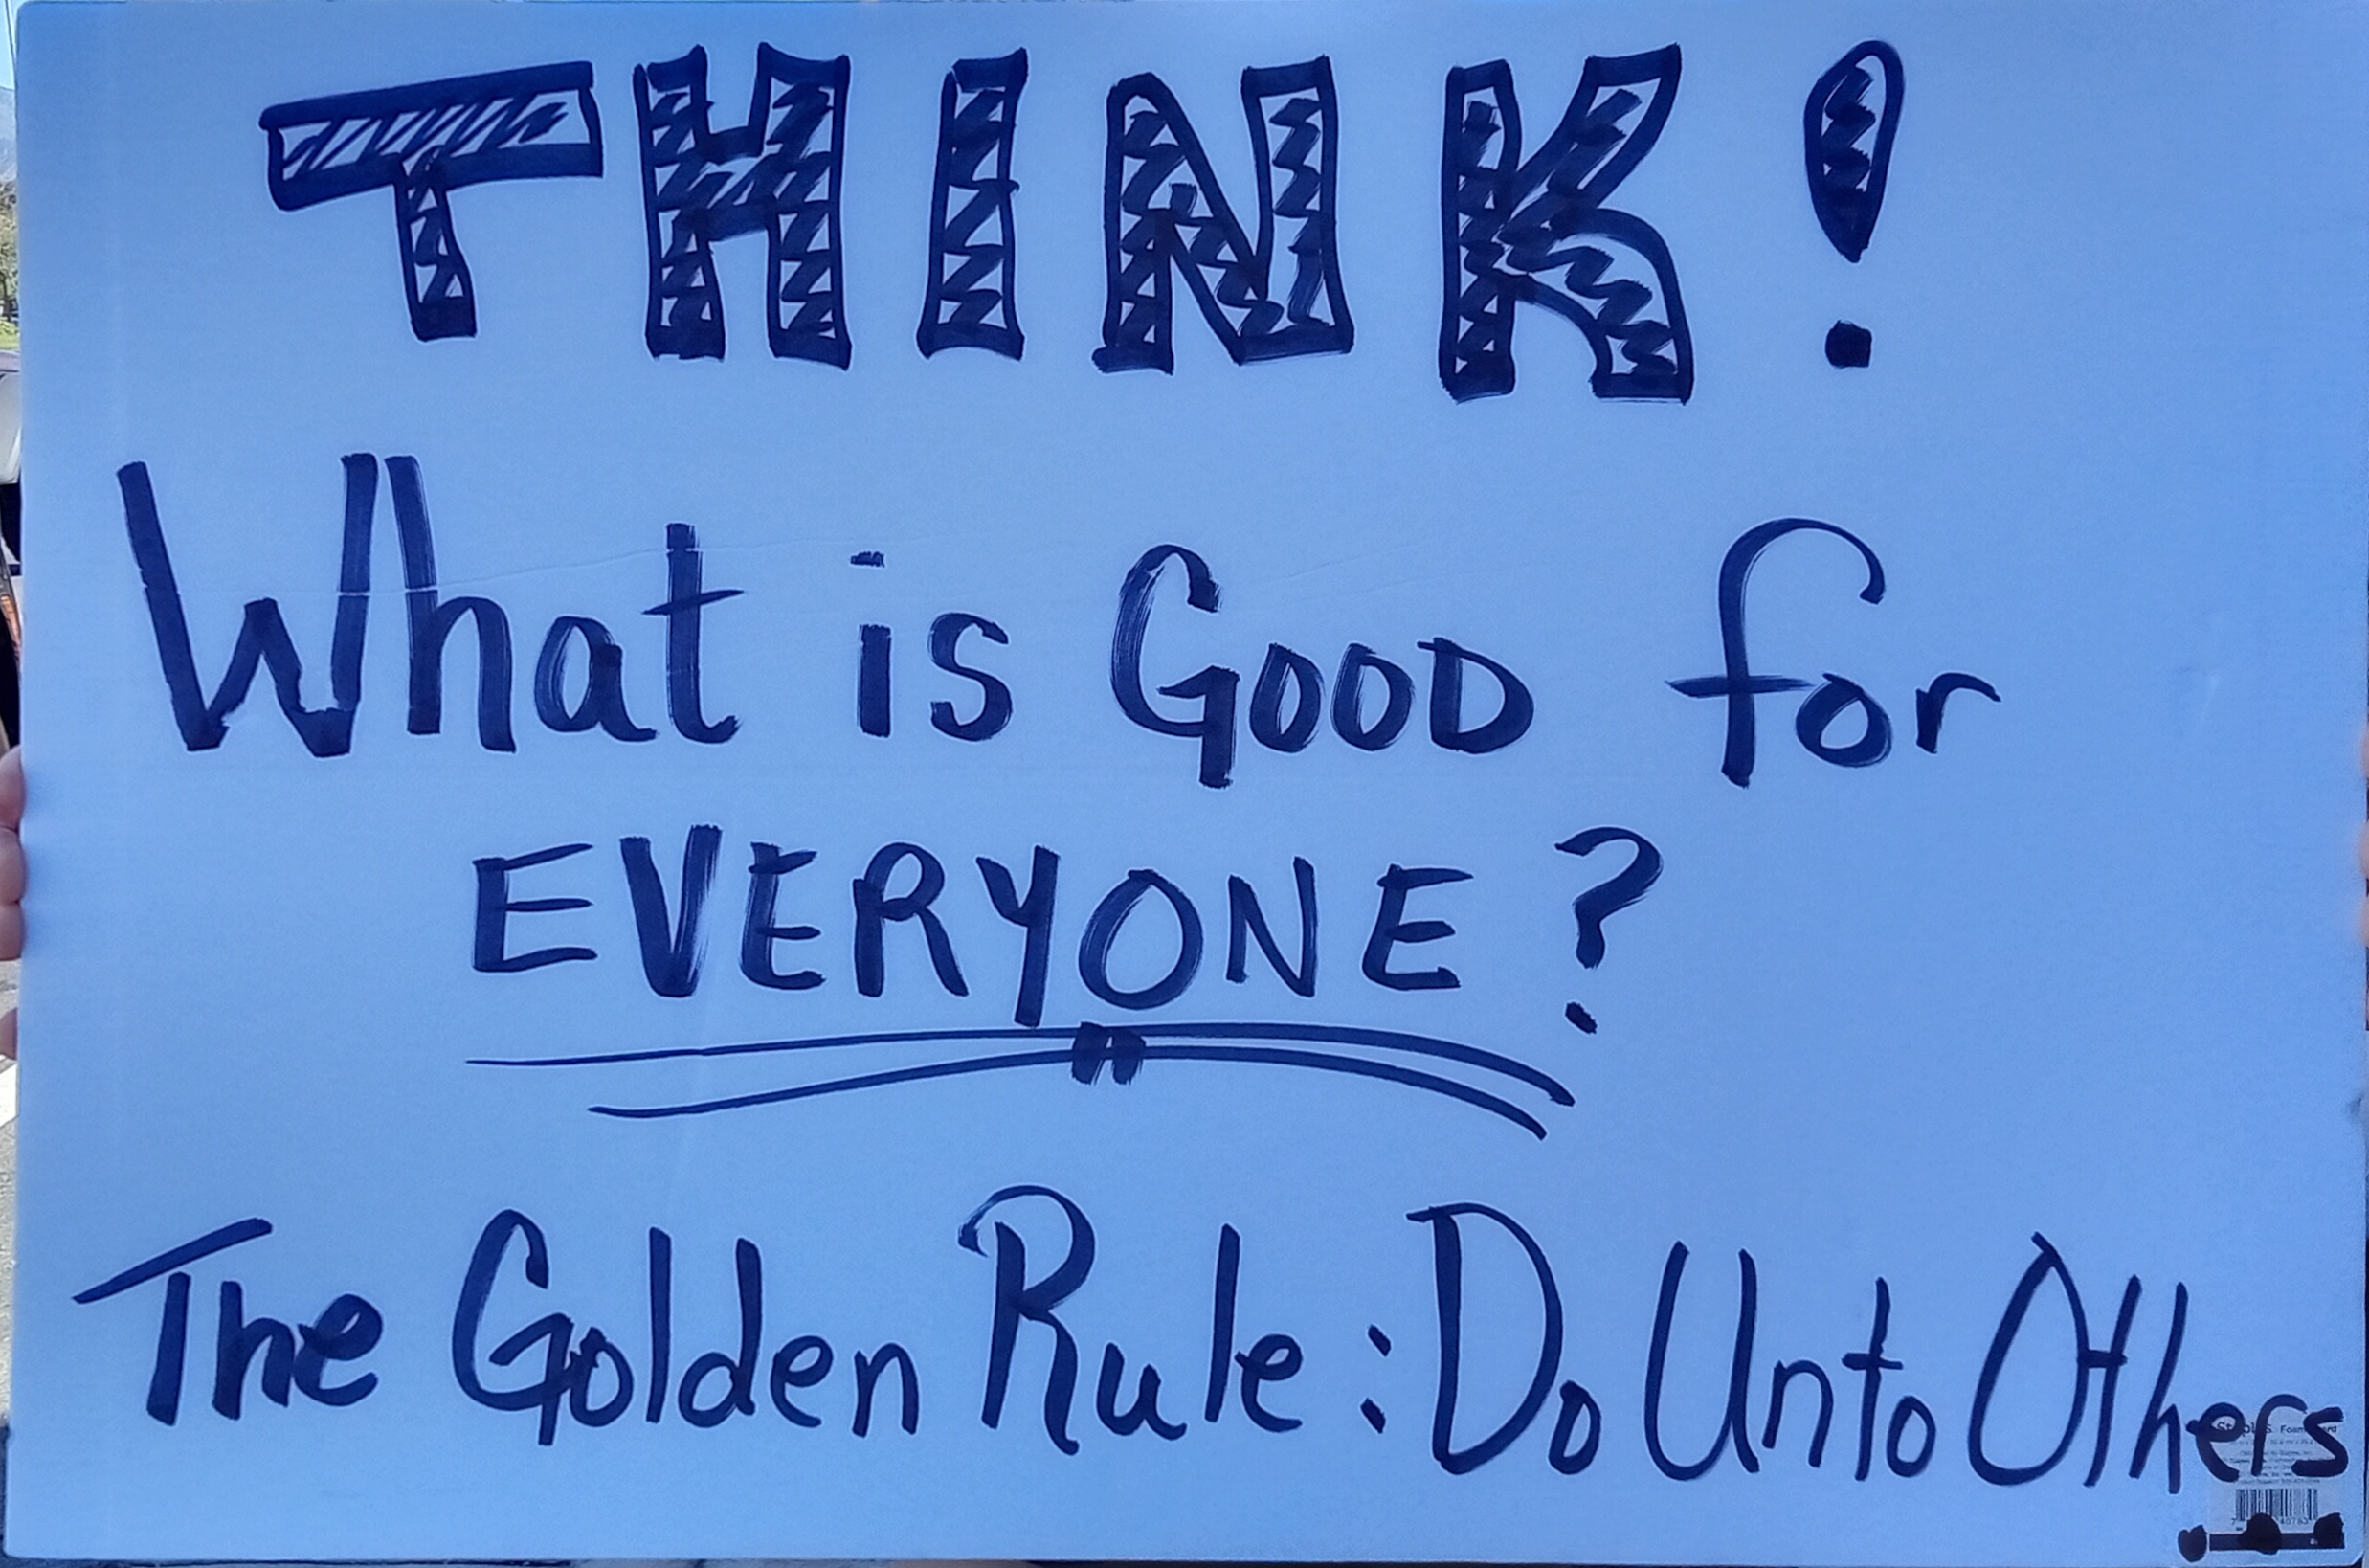 THINK!
What is GOOD for
EVERYONE?
The Golden Rule: Do Unto Others
Staples Foam Board